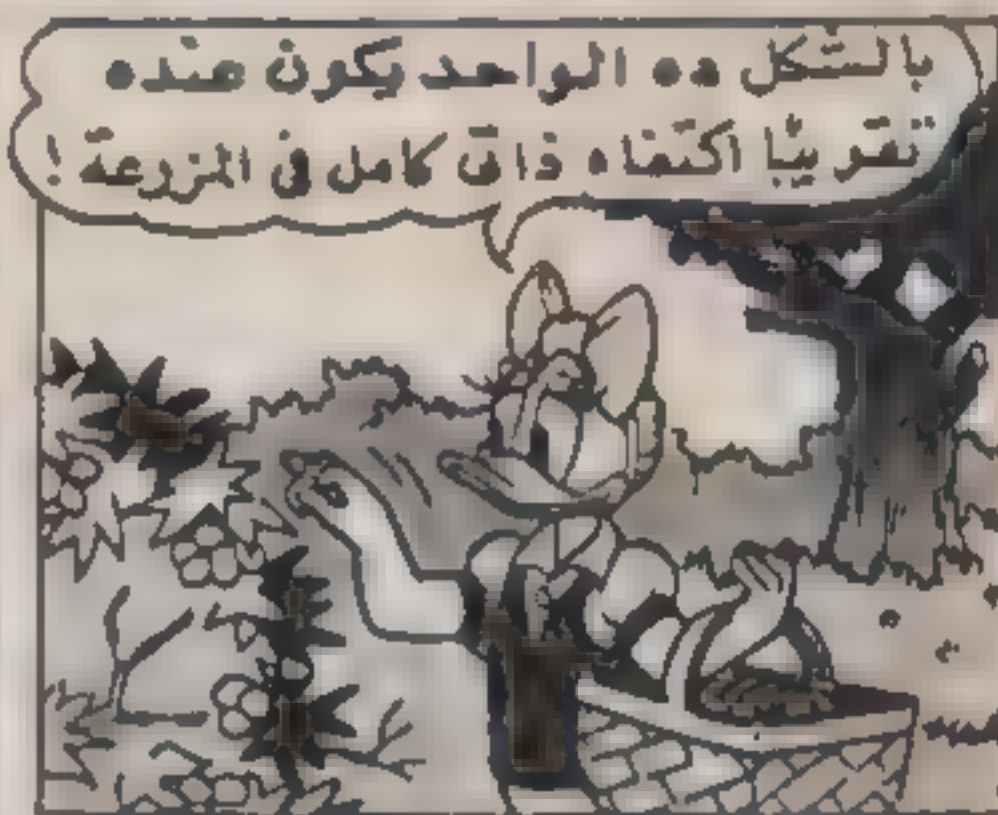 بالشكل ده الواحد يكون عنده
تقريبًا اكتفاء ذاتى كامل فى المزرعة !